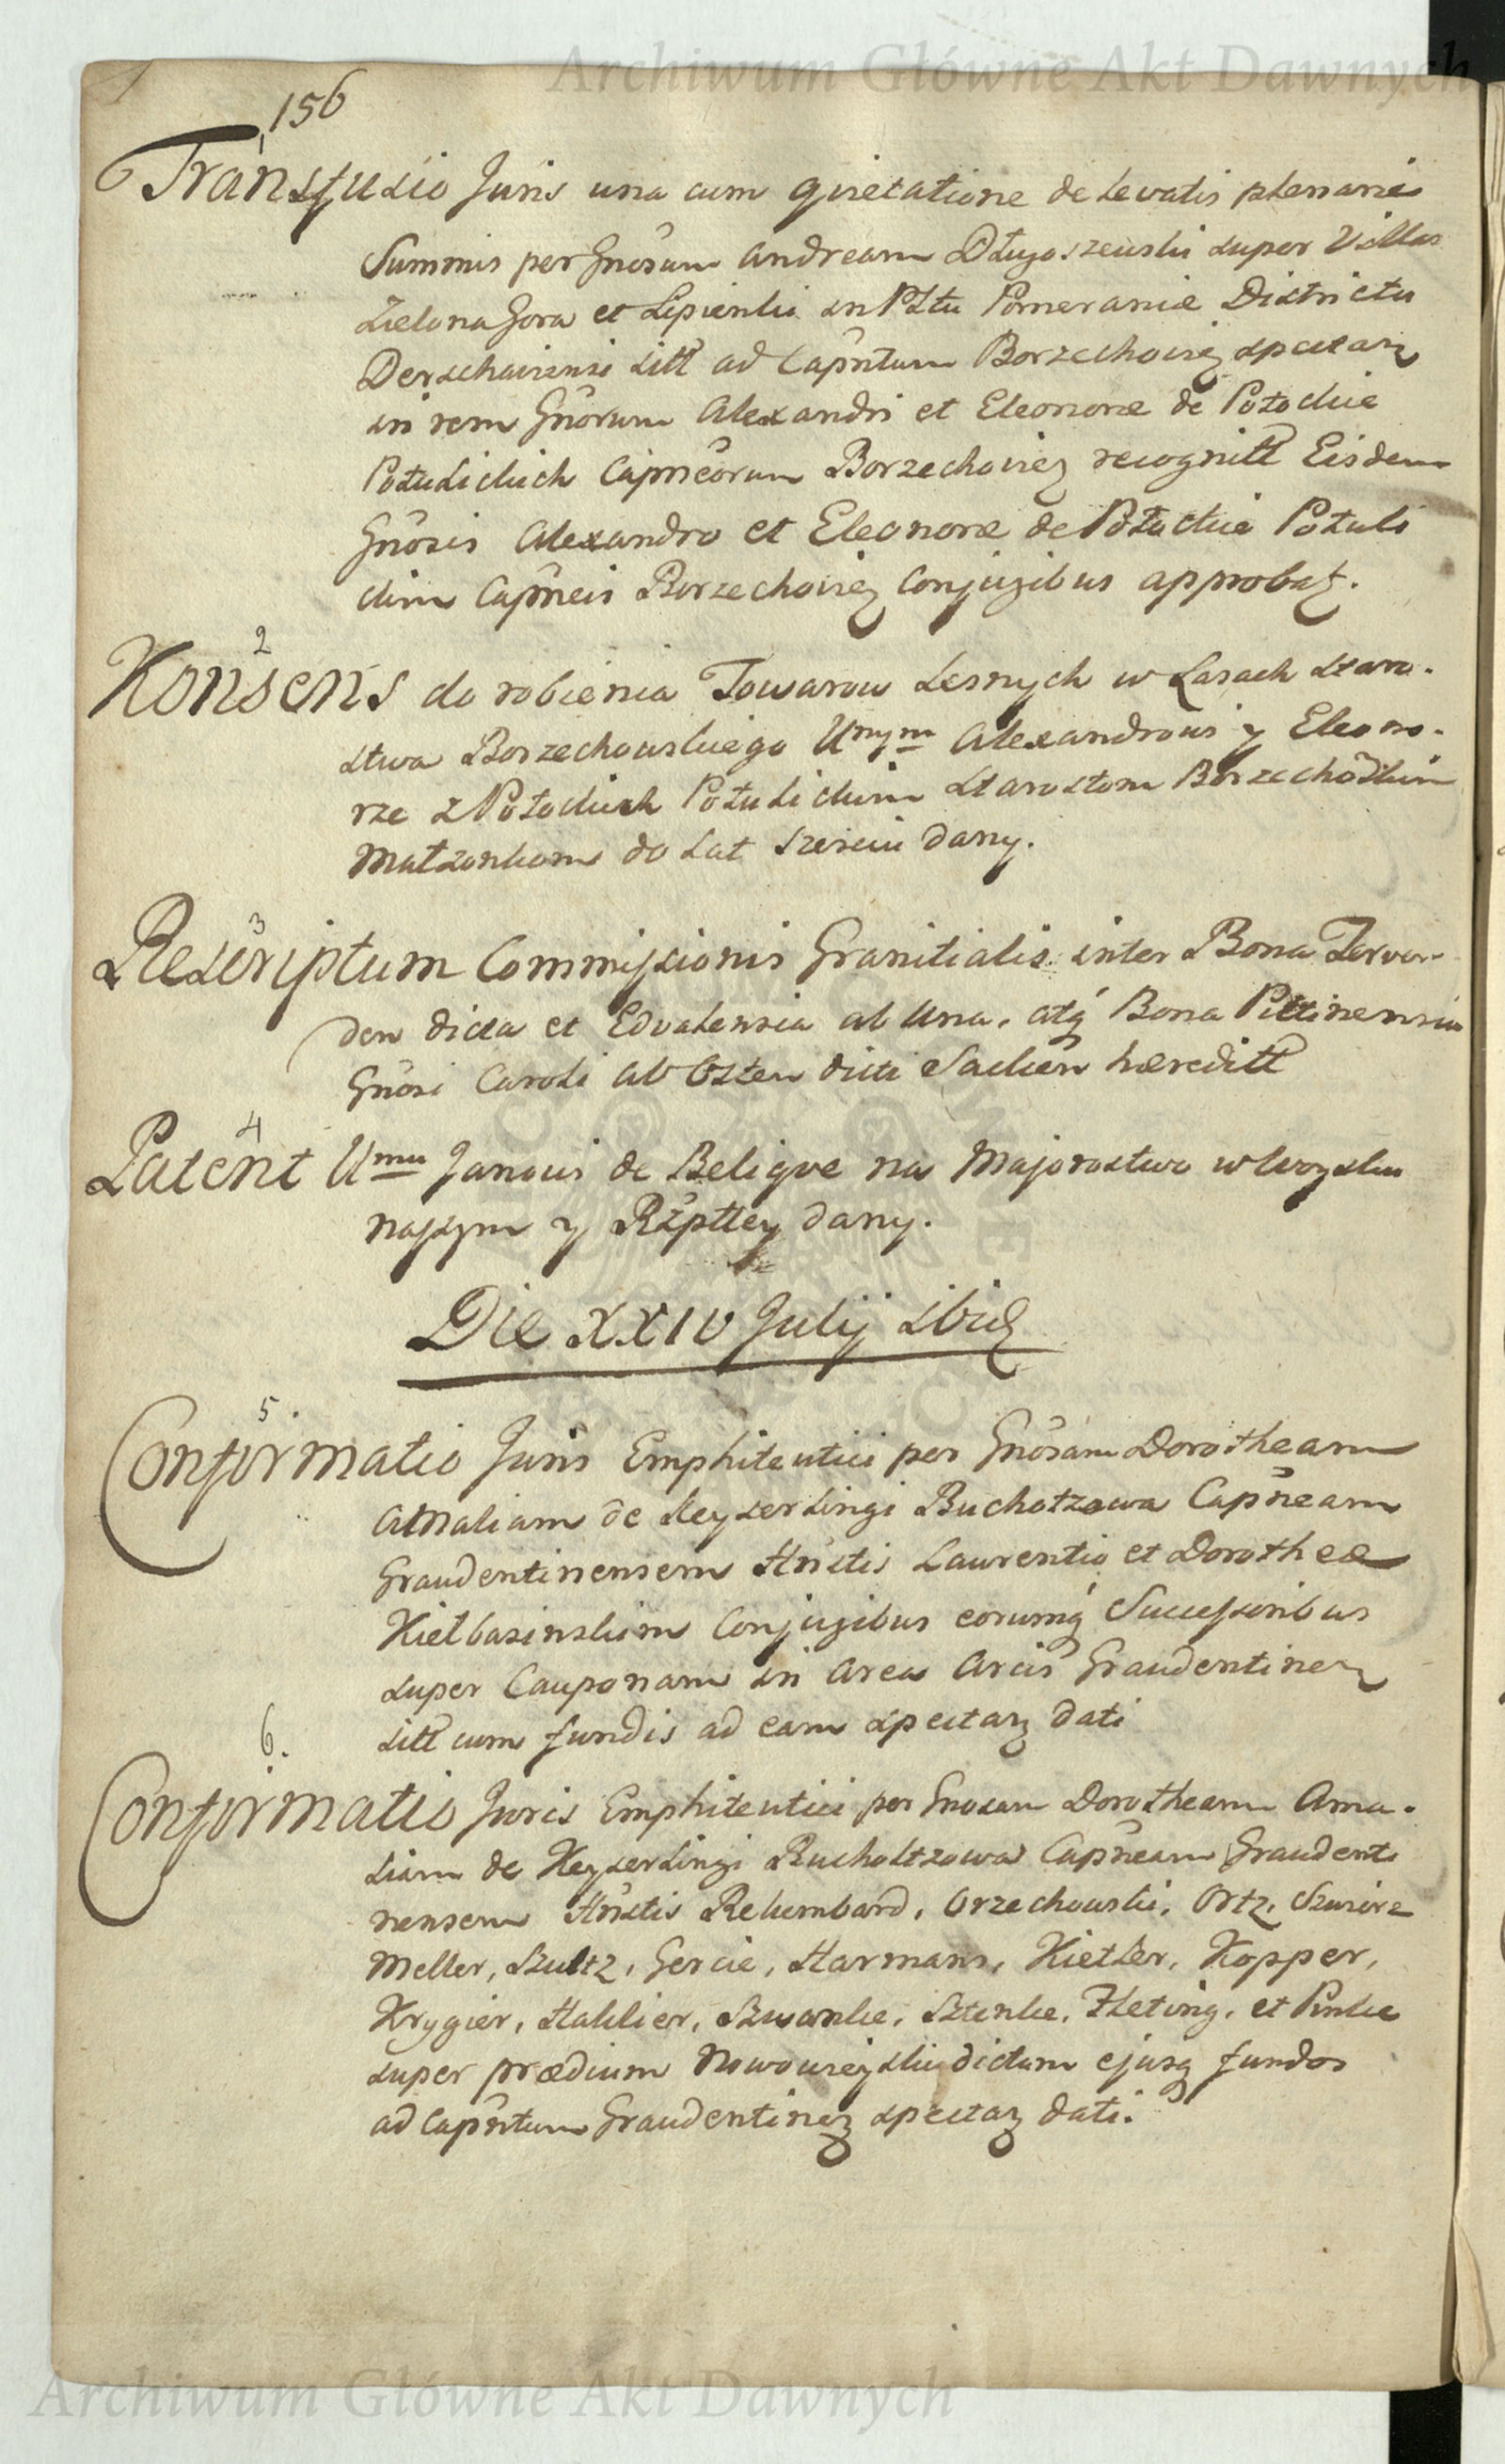 Archiwum Główne Akt Dawnych
156
1
Transfusio Juris una cum quietatione de levatis plenarie
Summis per Gnosum Andream Długoszewski super Villas
Zielona Gora et Lipienki in Pltu Pomeraniæ Districtu
Derschaviensi sitt ad Capntum Borzechovien spectan
in rem Gnorum Alexandri et Eleonoræ de Potockie
Potulickich Capneorum Borzechovien recognitt Eisdem
Gnosis Alexandro et Eleonoræ de Potockie Potuli
ckim Capneis Borzechovien Conjugibus approbat.
2
Konsens do robienia Towarow Lesnych w Lasach Staro-
stwa Borzechowskiego Urnym Alexandrowi y Eleono-
rze z Potockich Potulickim Starostom Borzechôskim
Małzonkom do Lat szesciu dany.
3
Rescriptum Commissionis Granitialis inter Bona
den dicta et Edvalensia ab Una, atq Bona Piltinensia
Gnosi Caroli ab Osten dicti Sacken hæreditt
4
Patent Urmu Janowi de Beliqve na Majorostwo w Woysku
naszym y Rzpttey dany.
Die XXIV Julij ibid
5.
Confirmatio Juris Emphiteutici per Gnosam Dorotheam
Amaliam de Keyserlingi Bucholtzowa Capneam
Graudentinensem Hnstis Laurentio et Dorotheæ
Kiełbasinskim Conjugibus eorumq Successoribus
super Cauponam in Area Arcis Graudentinen
sitt cum fundis ad eam spectan dati
6.
Confirmatio Juris Emphiteutici per Gnosam Dorotheam Ama-
liam de Keyserlingi Bucholtzowa Capneam Graudenti
nensem Hnstis Rekembard, Orzechowski, Ortz,
Meller, Szultz, Gercie, Harmans, Kietler, Kopper,
Krygier, Haklier, Szwanke, Sztenke, Fleting, et Pinke
super prædium Nowowieyskie dictum ejusq fundos
ad Capntum Graudentinen spectan dati.
Archiwum Główne Akt Dawnych